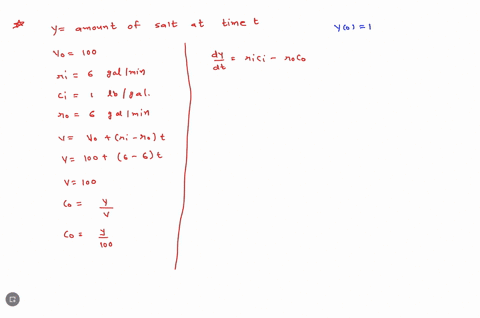 y = amount of salt at time t
y(0) = 1
V₀ = 100
ri = 6 gal/min
ci = 1 lb/gal.
r₀ = 6 gal/min
V = V₀ + (ri - r₀) t
V = 100 + (6 - 6) t
V = 100
C₀ = y/V
C₀ = y/100
dy/dt = ri ci - r₀ c₀